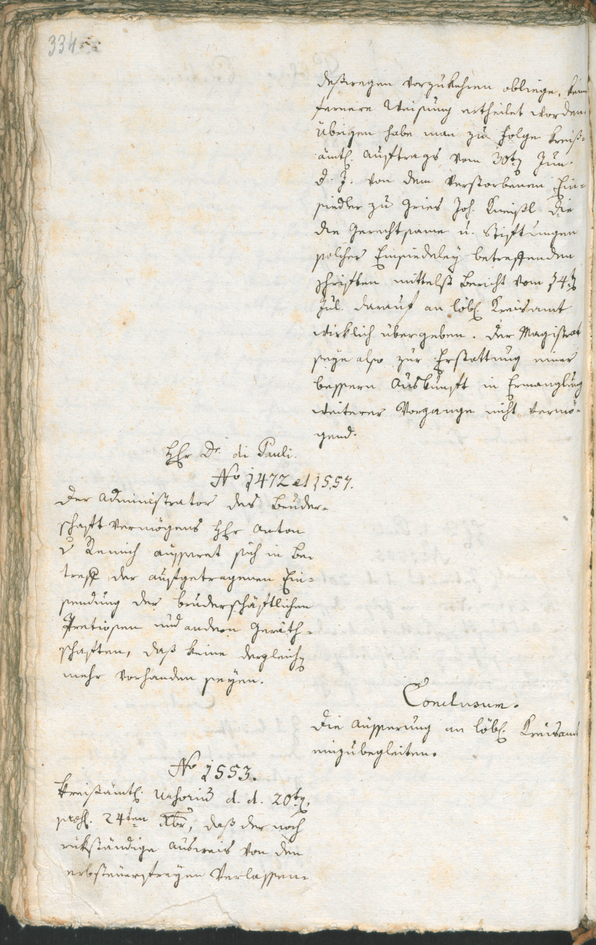 334
deßwegen vorzukehren obliege, kein
fernere Weisung ertheilet worden
übrigen habe man zu folge kreis¬
ämtl. Auftrags vom 30ten Jun.
d. J. von dem verstorbenen Ein¬
siedler zu Gries Joh. die
die Gerechtsame u. Stiftungen
solcher Einsiedeley betreffenden
Schriften mittelst Bericht vom 14ten
Jul. darauf an löbl. Kreisamt
wirklich übergeben. Der Magistrat
seye also zur Erstattung einer
bessern Auskunft in Ermanglung
weiterer Vorgange nicht vermö¬
gend.
HHr Dr. di Pauli.
No 1472 et 1557.
Der Administrator des Bruder¬
schaft vermögens HHr Anton
v Remich äussert sich in Be¬
treff der aufgetragenen Ein¬
sendung der bruderschäftlichen
Pretiosen und andern Geräth¬
schaften, daß keine dergleich
mehr vorhanden seyen.
Conclusum.
die Äusserung an löbl. Kreisamt
einzubegleiten.
No 1553.
Kreisämtl. d. d. 20ten,
24ten Xbr, daß der noch
rükständige Ausweis von den
erbsteuerfreyen Verlassen¬